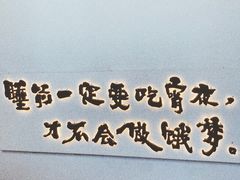 睡前一定要吃宵夜，
才不会做饿梦。